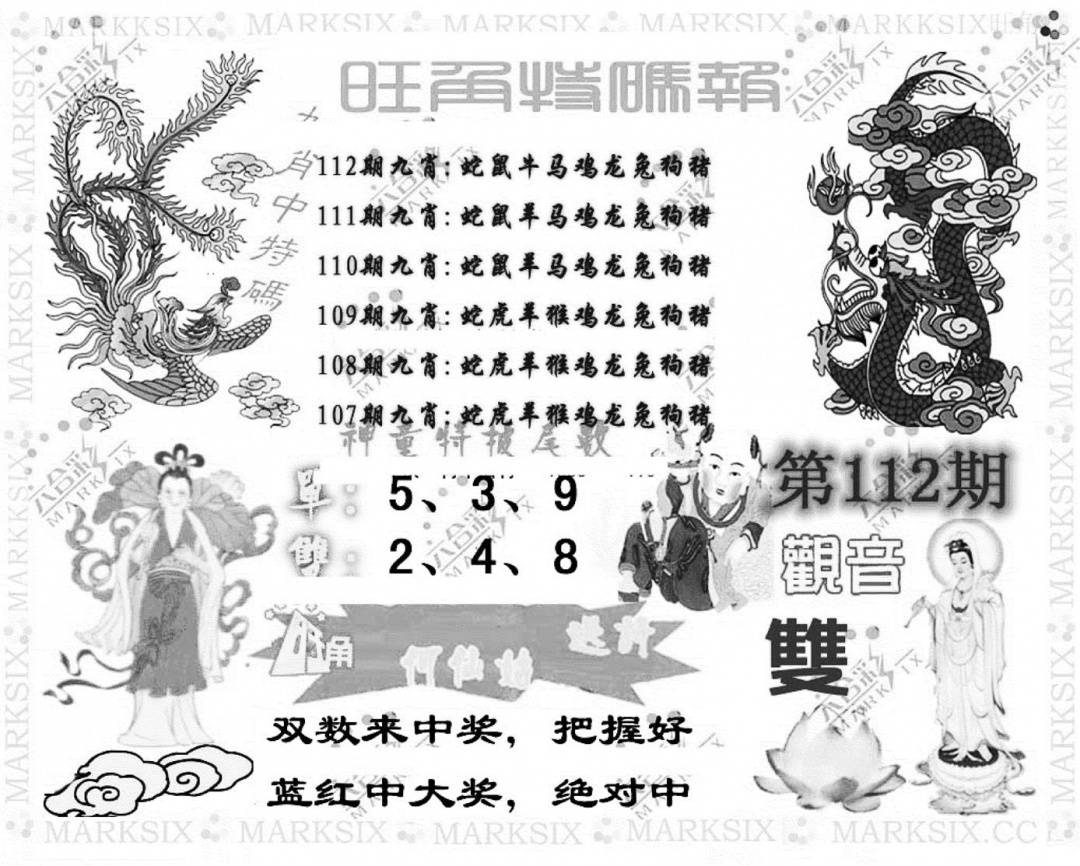 旺角特碼報
九肖中特碼
112期九肖:蛇鼠牛马鸡龙兔狗猪
111期九肖:蛇鼠羊马鸡龙兔狗猪
110期九肖:蛇鼠羊马鸡龙兔狗猪
109期九肖:蛇虎羊猴鸡龙兔狗猪
108期九肖:蛇虎羊猴鸡龙兔狗猪
107期九肖:蛇虎羊猴鸡龙兔狗猪
神童特报尾数
單:5、3、9
雙:2、4、8
第112期
觀音
雙
何仙姑
双数来中奖,把握好
蓝红中大奖,绝对中
MARKSIX
MARKSIX.CC
六合彩
MARKSIX